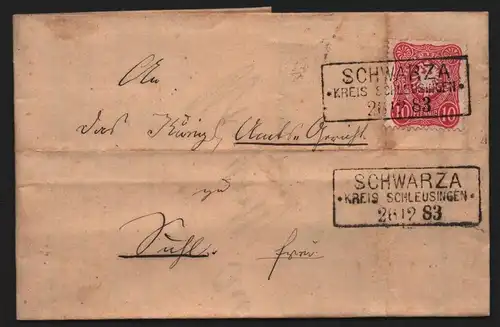 An
das Königl. Amts-Gericht
zu
Suhl.
frei
SCHWARZA
• KREIS SCHLEUSINGEN •
26 12 83
10 PFENNIG 10
SCHWARZA
• KREIS SCHLEUSINGEN •
26 12 83